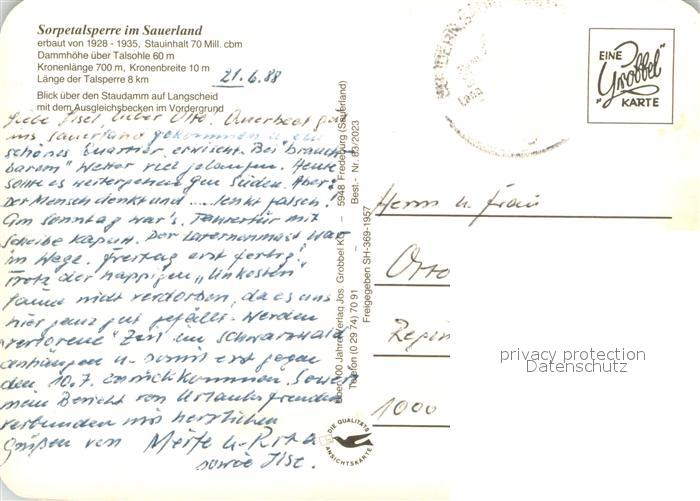 Sorpetalsperre im Sauerland
erbaut von 1928 - 1935, Stauinhalt 70 Mill. cbm
Dammhöhe über Talsohle 60 m
Kronenlänge 700 m, Kronenbreite 10 m
Länge der Talsperre 8 km
21.6.88
Blick über den Staudamm auf Langscheid
mit dem Ausgleichsbecken im Vordergrund
Liebe Ilse, lieber Otto. Querbeet
ins Sauerland gekommen u. ein
schönes Quartier erwischt. Bei "brauch-
barem" Wetter viel gelaufen. Heute
sollte es weitergehen gen Süden. Aber:
Der Mensch denkt und ... lenkt falsch!
Am Sonntag war's. Fahrertür mit
Scheibe kaputt. Der Laternenmast war
im Wege. Freitag erst fertig!
Trotz der happigen "Unkosten"
Laune nicht verdorben, da es uns
hier ganz gut gefällt. Werden
"verlorene" Zeit im Schwarzwald
anhängen u. somit erst gegen
den 10.7. zurückkommen. Soweit
mein Bericht von Urlaubsfreuden
verbunden mit herzlichen
Grüßen von
sowie Ilse.
Über 100 Jahre Verlag Jos. Grobbel KG – 5948 Fredeburg (Sauerland)
Telefon (0 29 74) 70 91 – Best.- Nr. 83/2023
Freigegeben SH-369-1957
DIE QUALITÄTS
ANSICHTSKARTE
EINE
"Grobbel"
KARTE
Herrn u. Frau
Otto
1000
privacy protection
Datenschutz